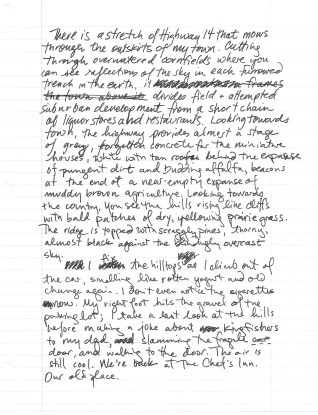 There is a stretch of Highway 14 that mows
through the outskirts of my town. Cutting
through overwatered cornfields where you
can see reflections of the sky in each furrowed
trench in the earth, it
divides field + attempted
suburban development from a short chain
of liquor stores and restaurants. Looking towards
town, the highway provides almost a stage
of grey, forgotten concrete for the miniature
houses, white with tan roofs behind the expanse
of pungent dirt and budding alfalfa, beacons
at the end of a near-empty expanse of
muddy brown agriculture. Looking towards
the country, you see the hills rising like cliffs
with bald patches of dry, yellowing prairie grass.
The ridge is topped with scraggly pines, thorny,
almost black against the blindingly overcast
sky.
I the hilltops as I climb out of
the car, smelling like rotten yogurt and old
chunga again. I don't even notice the cigarettes
now. My right foot hits the gravel of the
parking lot; I take a last look at the hills
before making a joke about kingfishers
to my dad, slamming the fragile
door, and walking to the door. The air is
still cool. We're back at The Chef's Inn.
Our old place.